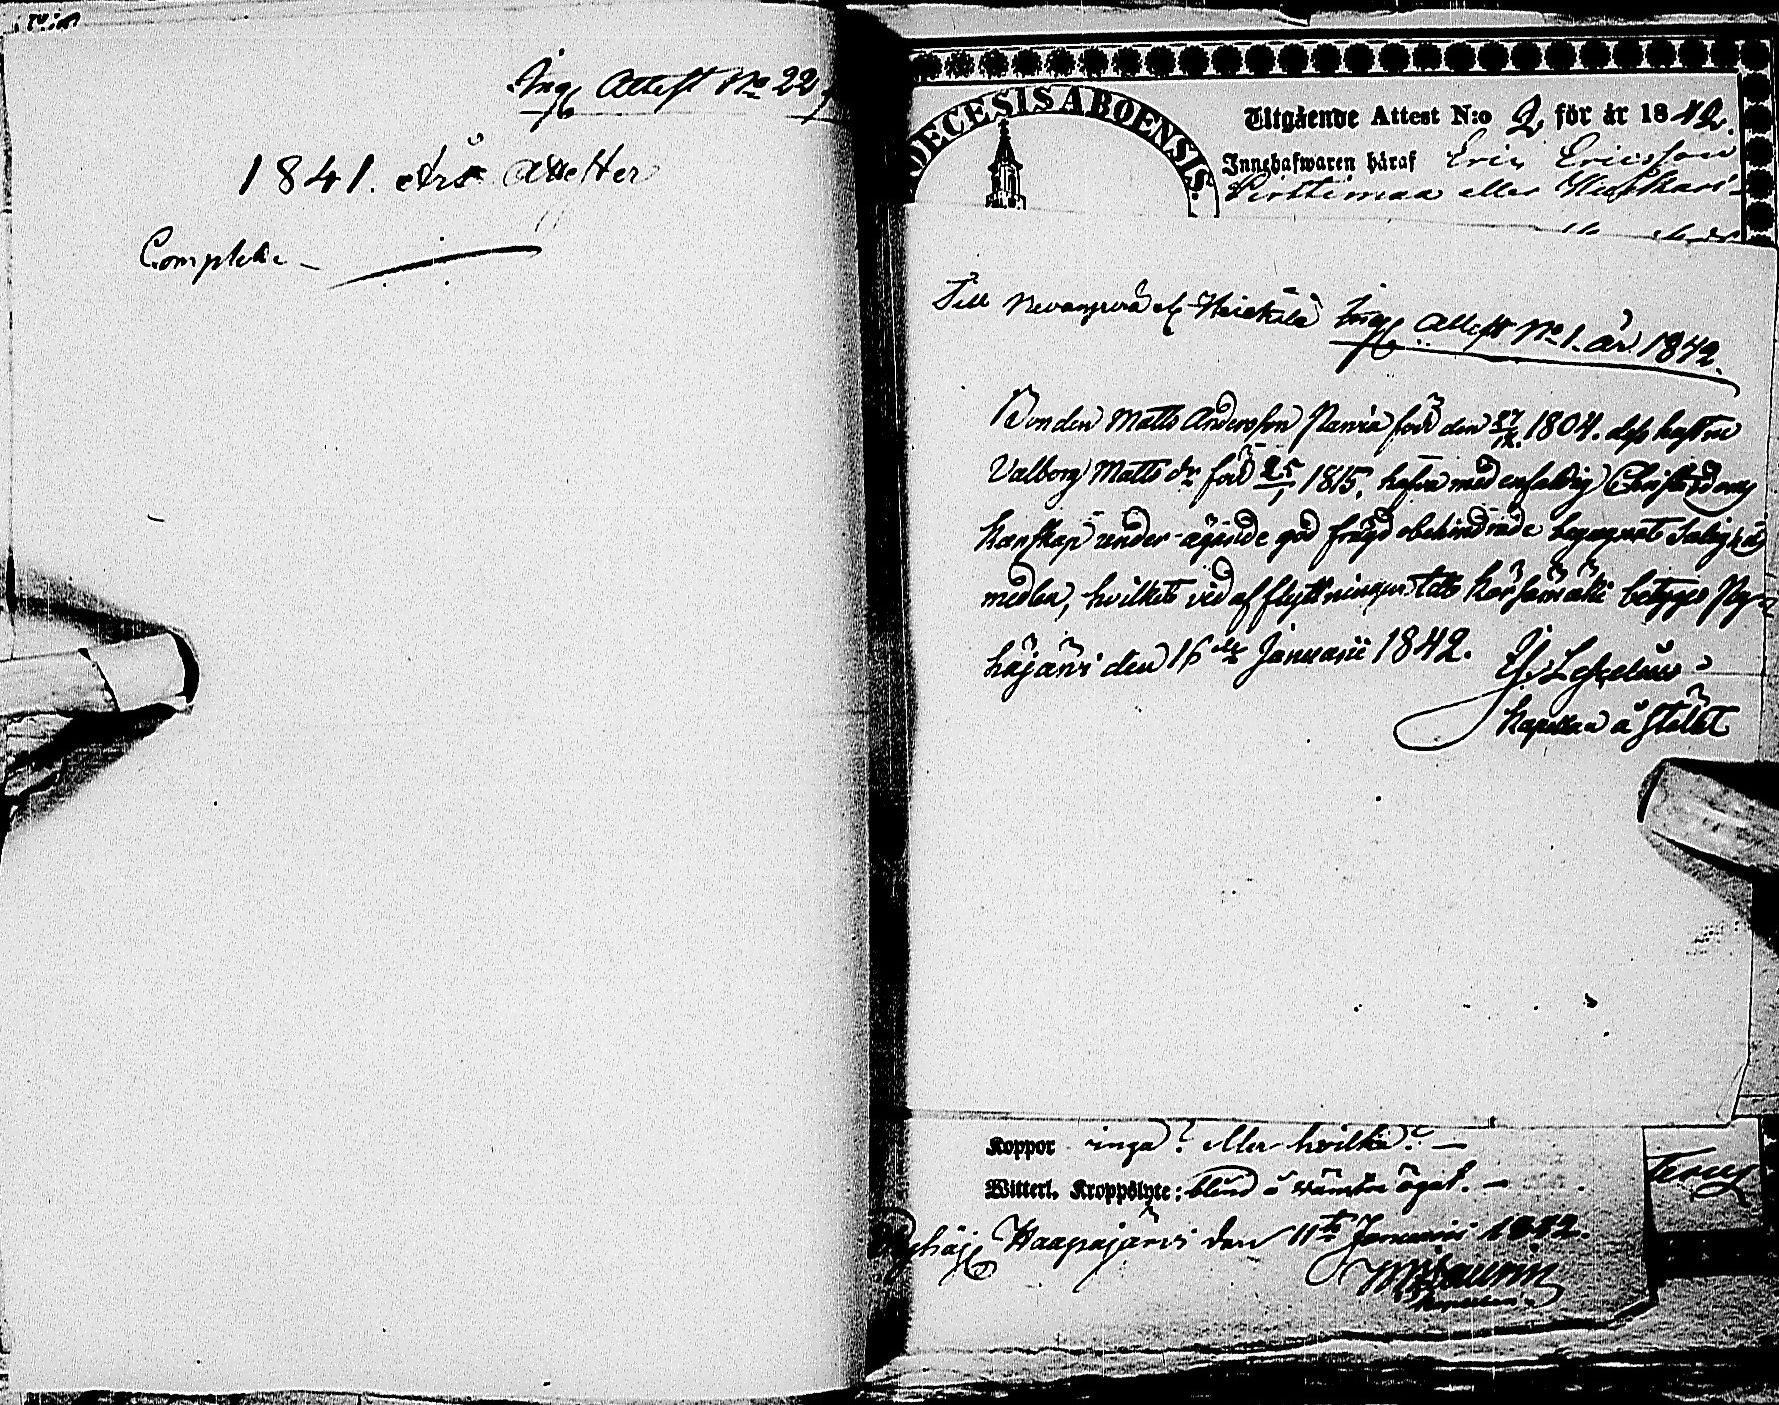 Ing. Attest No 22,
1841. års Attester
Complette
DECESIS ABOENSIS.
Utgående Attest N:o 2, för år 1842.
Innehafwaren häraf Eric Ericsson
Perttimaa eller
Till Ing. Attest No 1. år 1842.
Bonden Matts Andersson född den 27/12. 1804. dess hustru
Valborg Matts dr född 25/1 1815, hafva med enfaldig Christendoms
kunskap under ägande god frägd obehindrade begagnat Salighets
medlen, hvilket vid afflyttningen till Kärsämäki betygas Py-
häjärvi den 16de Januarii 1842.
Kapellan å stället
Koppor inga? eller hvilka? —
Witterl. Kroppslyte: blind å vänstra ögat. —
Pyhäj. Haapajärvi den 11te Januarii 1842.